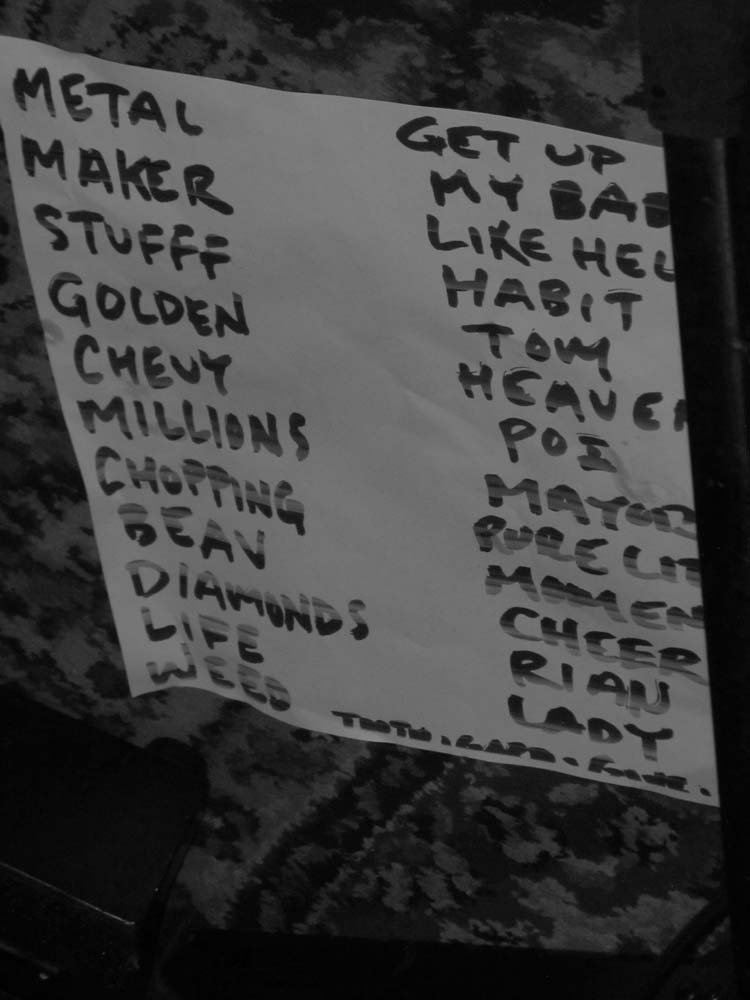 METAL
MAKER
STUFFF
GOLDEN
CHEVY
MILLIONS
CHOPPING
BEAV
DIAMONDS
LIFE
WEED
GET UP
MY BAB
LIKE HEL
HABIT
TOM
HEAVEN
POI
MAYOR
PURE LIT
MOMEN
CHEER
RIAN
LADY
TOOTH.